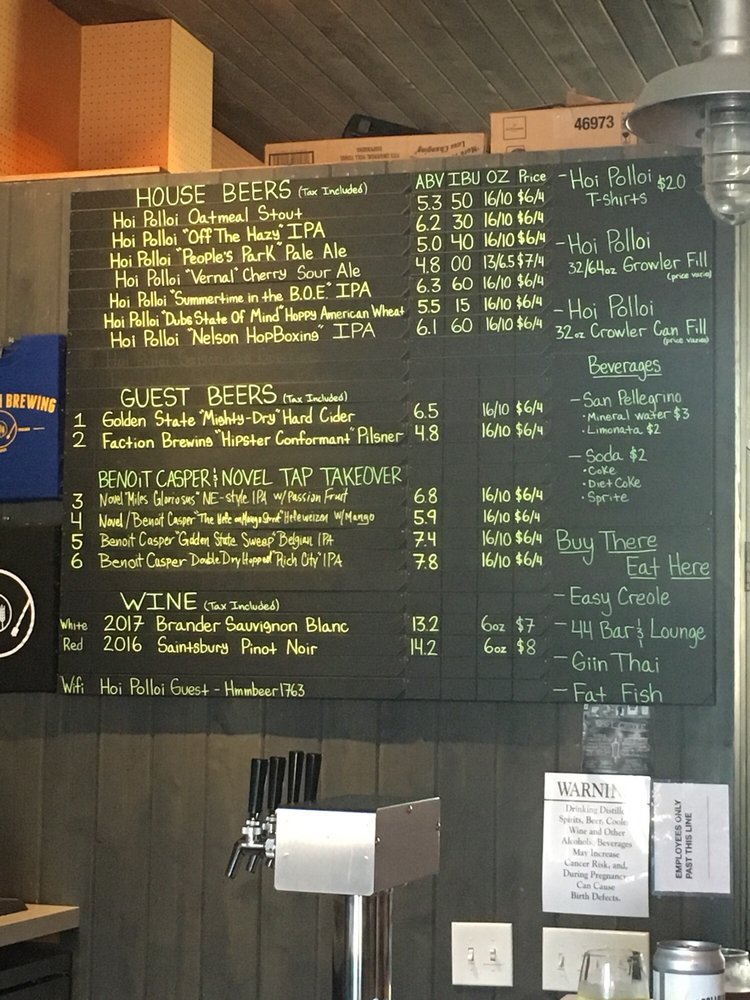 46973
BREWING
HOUSE BEERS (Tax Included) ABV IBU OZ Price
Hoi Polloi Oatmeal Stout 5.3 50 16/10 $6/4
Hoi Polloi "Off The Hazy" IPA 6.2 30 16/10 $6/4
Hoi Polloi "People's Park" Pale Ale 5.0 40 16/10 $6/4
Hoi Polloi "Vernal" Cherry Sour Ale 4.8 00 13/6.5 $7/4
Hoi Polloi "Summertime in the B.O.E." IPA 6.3 60 16/10 $6/4
Hoi Polloi "Dubs State Of Mind" Hoppy American Wheat 5.5 15 16/10 $6/4
Hoi Polloi "Nelson HopBoxing" IPA 6.1 60 16/10 $6/4
GUEST BEERS (Tax Included)
1 Golden State "Mighty-Dry" Hard Cider 6.5 16/10 $6/4
2 Faction Brewing "Hipster Conformant" Pilsner 4.8 16/10 $6/4
BENOIT CASPER & NOVEL TAP TAKEOVER
3 Novel "Miles Gloriosus" NE-style IPA w/Passion Fruit 6.8 16/10 $6/4
4 Novel/Benoit Casper "The Hefe on Mango Street" Hefeweizen w/Mango 5.9 16/10 $6/4
5 Benoit Casper "Golden State Sweep" Belgian IPA 7.4 16/10 $6/4
6 Benoit Casper "Double Dry Hopped "Rich City" IPA 7.8 16/10 $6/4
WINE (Tax Included)
White 2017 Brander Sauvignon Blanc 13.2 6oz $7
Red 2016 Saintsbury Pinot Noir 14.2 6oz $8
Wifi Hoi Polloi Guest - Hmmbeer1763
- Hoi Polloi $20
T-shirts
- Hoi Polloi
32/64oz Growler Fill
(price varies)
- Hoi Polloi
32oz Crowler Can Fill
(price varies)
Beverages
- San Pellegrino
• Mineral water $3
• Limonata $2
- Soda $2
• Coke
• Diet Coke
• Sprite
Buy There
Eat Here
- Easy Creole
- 44 Bar & Lounge
- Giin Thai
- Fat Fish
WARNIN
Drinking Distille
Spirits, Beer, Coole
Wine and Other
Alcoholic Beverages
May Increase
Cancer Risk, and,
During Pregnancy
Can Cause
Birth Defects.
EMPLOYEES ONLY
PAST THIS LINE